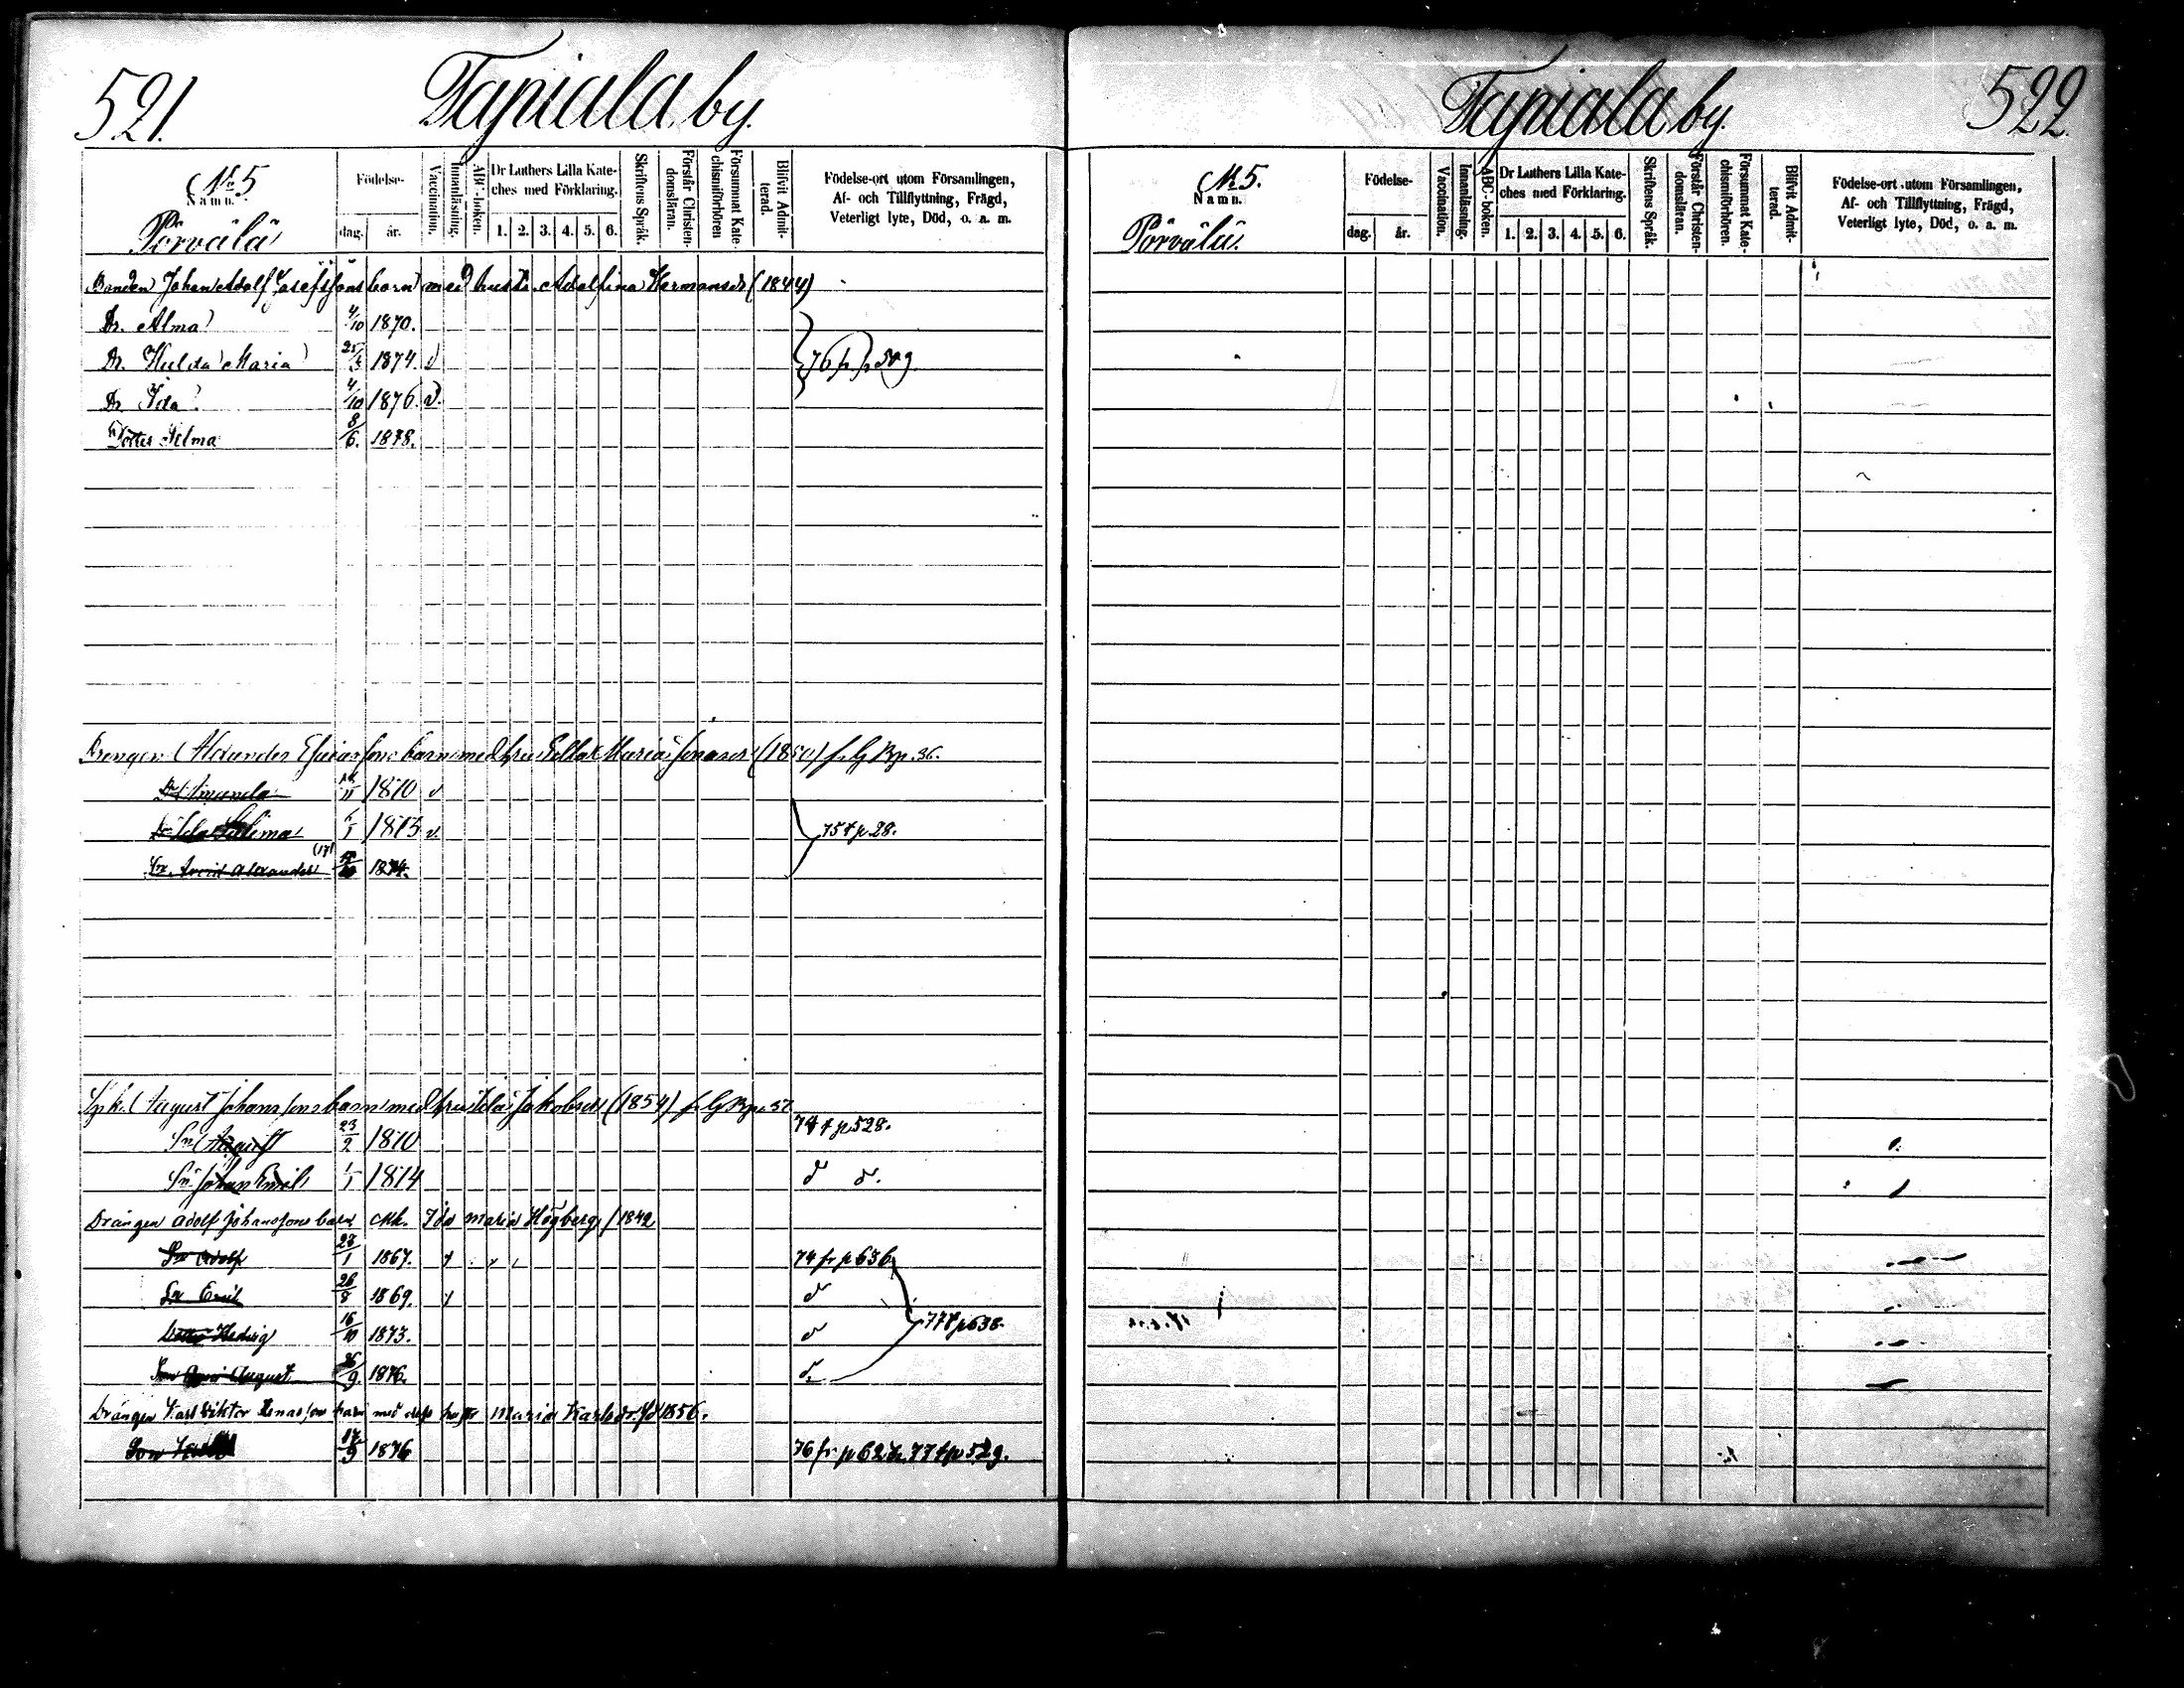 521.
Tapiala by.
No 5
Namn.
Porvälä
Födelse-
dag.
år.
Vaccination.
Innanläsning.
ABC-boken.
Dr Luthers Lilla Kate-
ches med Förklaring.
1. 2. 3. 4. 5. 6.
Skriftens Språk.
Förstår Christen-
domsläran.
Försummat Kate-
chismiförhören
Blifvit Admit-
terad.
Födelse-ort utom Församlingen,
Af- och Tillflyttning, Frägd,
Veterligt lyte, Död, o. a. m.
Bonden Johan Adolf Josefssons barn med hust. Adolfina Hermansdr (1844)
Dr. Alma 4/10 1870.
Dr. Hulda Maria 25/3 1874. v
76 fr p 509
Dr Ida 4/10 1876. v.
Dotter Selma 8/6. 1878.
Drengen Alexander Esaiassons barn med hru Maria (1850) fr G Bp. 36.
Dr Amanda /11 1870 v
Dr Ida Salima 1/1 1873 v.
75 t p 28.
Sn. Arvid Alexander 1874.
Spk. August Johanssons barn med hru Ida Jakobsdr (1854) fr G Bp. 37
Sn August 23/2 1870 74 t p 528.
Sn Johan Emil 1/1 1874 d d.
Drängen Adolf Johanssons barn Ida Maria Högberg (1842
Sn Adolf 23/1 1867. 74 fr p 636
Sn Emil 26/8 1869. d
Dotter Hedvig 16/10 1873. d 77 t p 638.
Son August 26/9. 1876. d.
Drängen Karl Viktor barn med Maria Karlsdr. fd 1856.
Son 17/9 1876 76 fr p 62 77 t p 529.
522.
Tapiala by.
No 5.
Namn.
Porvälä.
Födelse-
dag.
år.
Vaccination.
Innanläsning.
ABC-boken.
Dr Luthers Lilla Kate-
ches med Förklaring.
1. 2. 3. 4. 5. 6.
Skriftens Språk.
Förstår Christen-
domsläran.
Försummat Kate-
chismiförhören.
Blifvit Admit-
terad.
Födelse-ort utom Församlingen,
Af- och Tillflyttning, Frägd,
Veterligt lyte, Död, o. a. m.